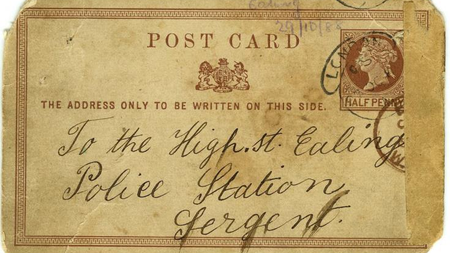 Ealing
29/10/88
POST CARD
LONDON
THE ADDRESS ONLY TO BE WRITTEN ON THIS SIDE.
HALF PENNY
To the High. st. Ealing
Police Station
Sergent.